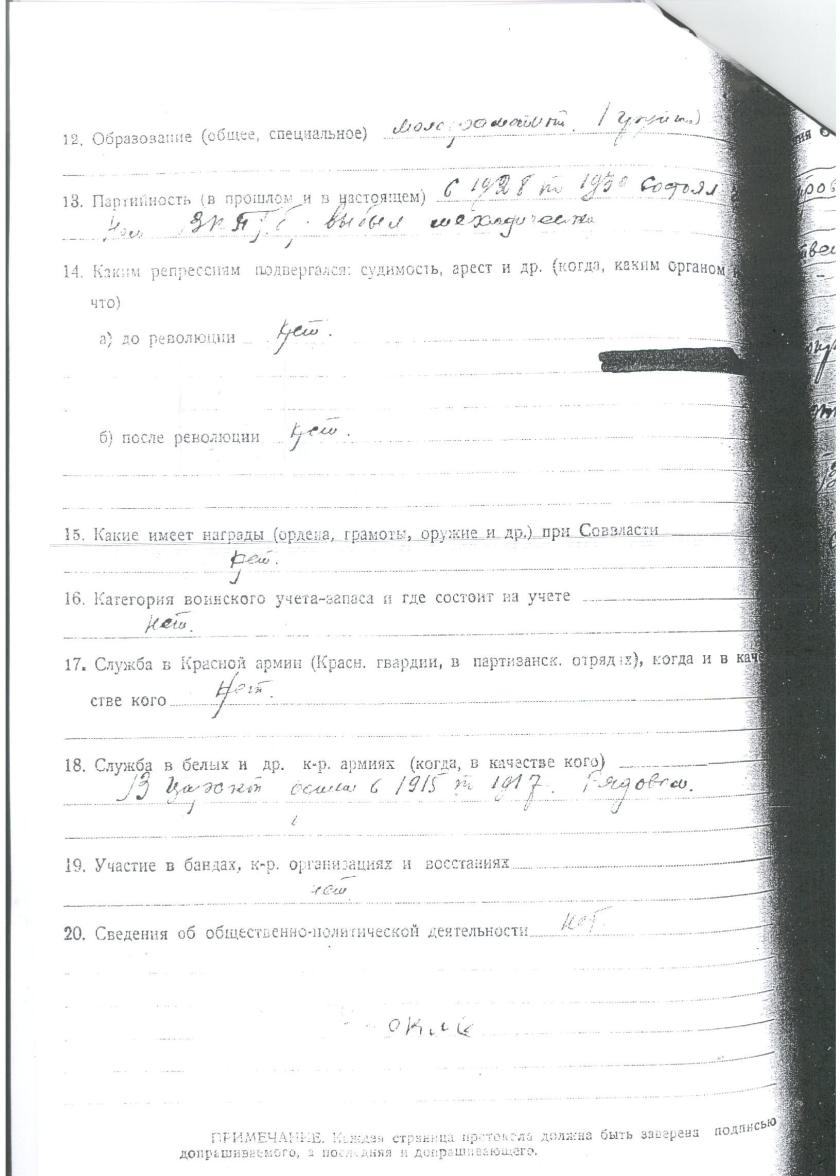 12. Образование (общее, специальное) малограмотн.
13. Партийность (в прошлом и в настоящем) с 1928 по 1930 состоял
член ВКП/б, выбыл механически
14. Каким репрессиям подвергался: судимость, арест и др. (когда, каким органом и
что)
а) до революции нет.
б) после революции нет.
15. Какие имеет награды (ордена, грамоты, оружие и др.) при Соввласти
нет.
16. Категория воинского учета-запаса и где состоит на учете
нет.
17. Служба в Красной армии (Красн. гвардии, в партизанск. отрядах), когда и в каче-
стве кого нет.
18. Служба в белых и др. к-р. армиях (когда, в качестве кого)
В царской с 1915 по 1917. Рядовым.
19. Участие в бандах, к-р. организациях и восстаниях
нет
20. Сведения об общественно-политической деятельности нет.
ПРИМЕЧАНИЕ. Каждая страница протокола должна быть заверена подписью
допрашиваемого, а последняя и допрашивающего.